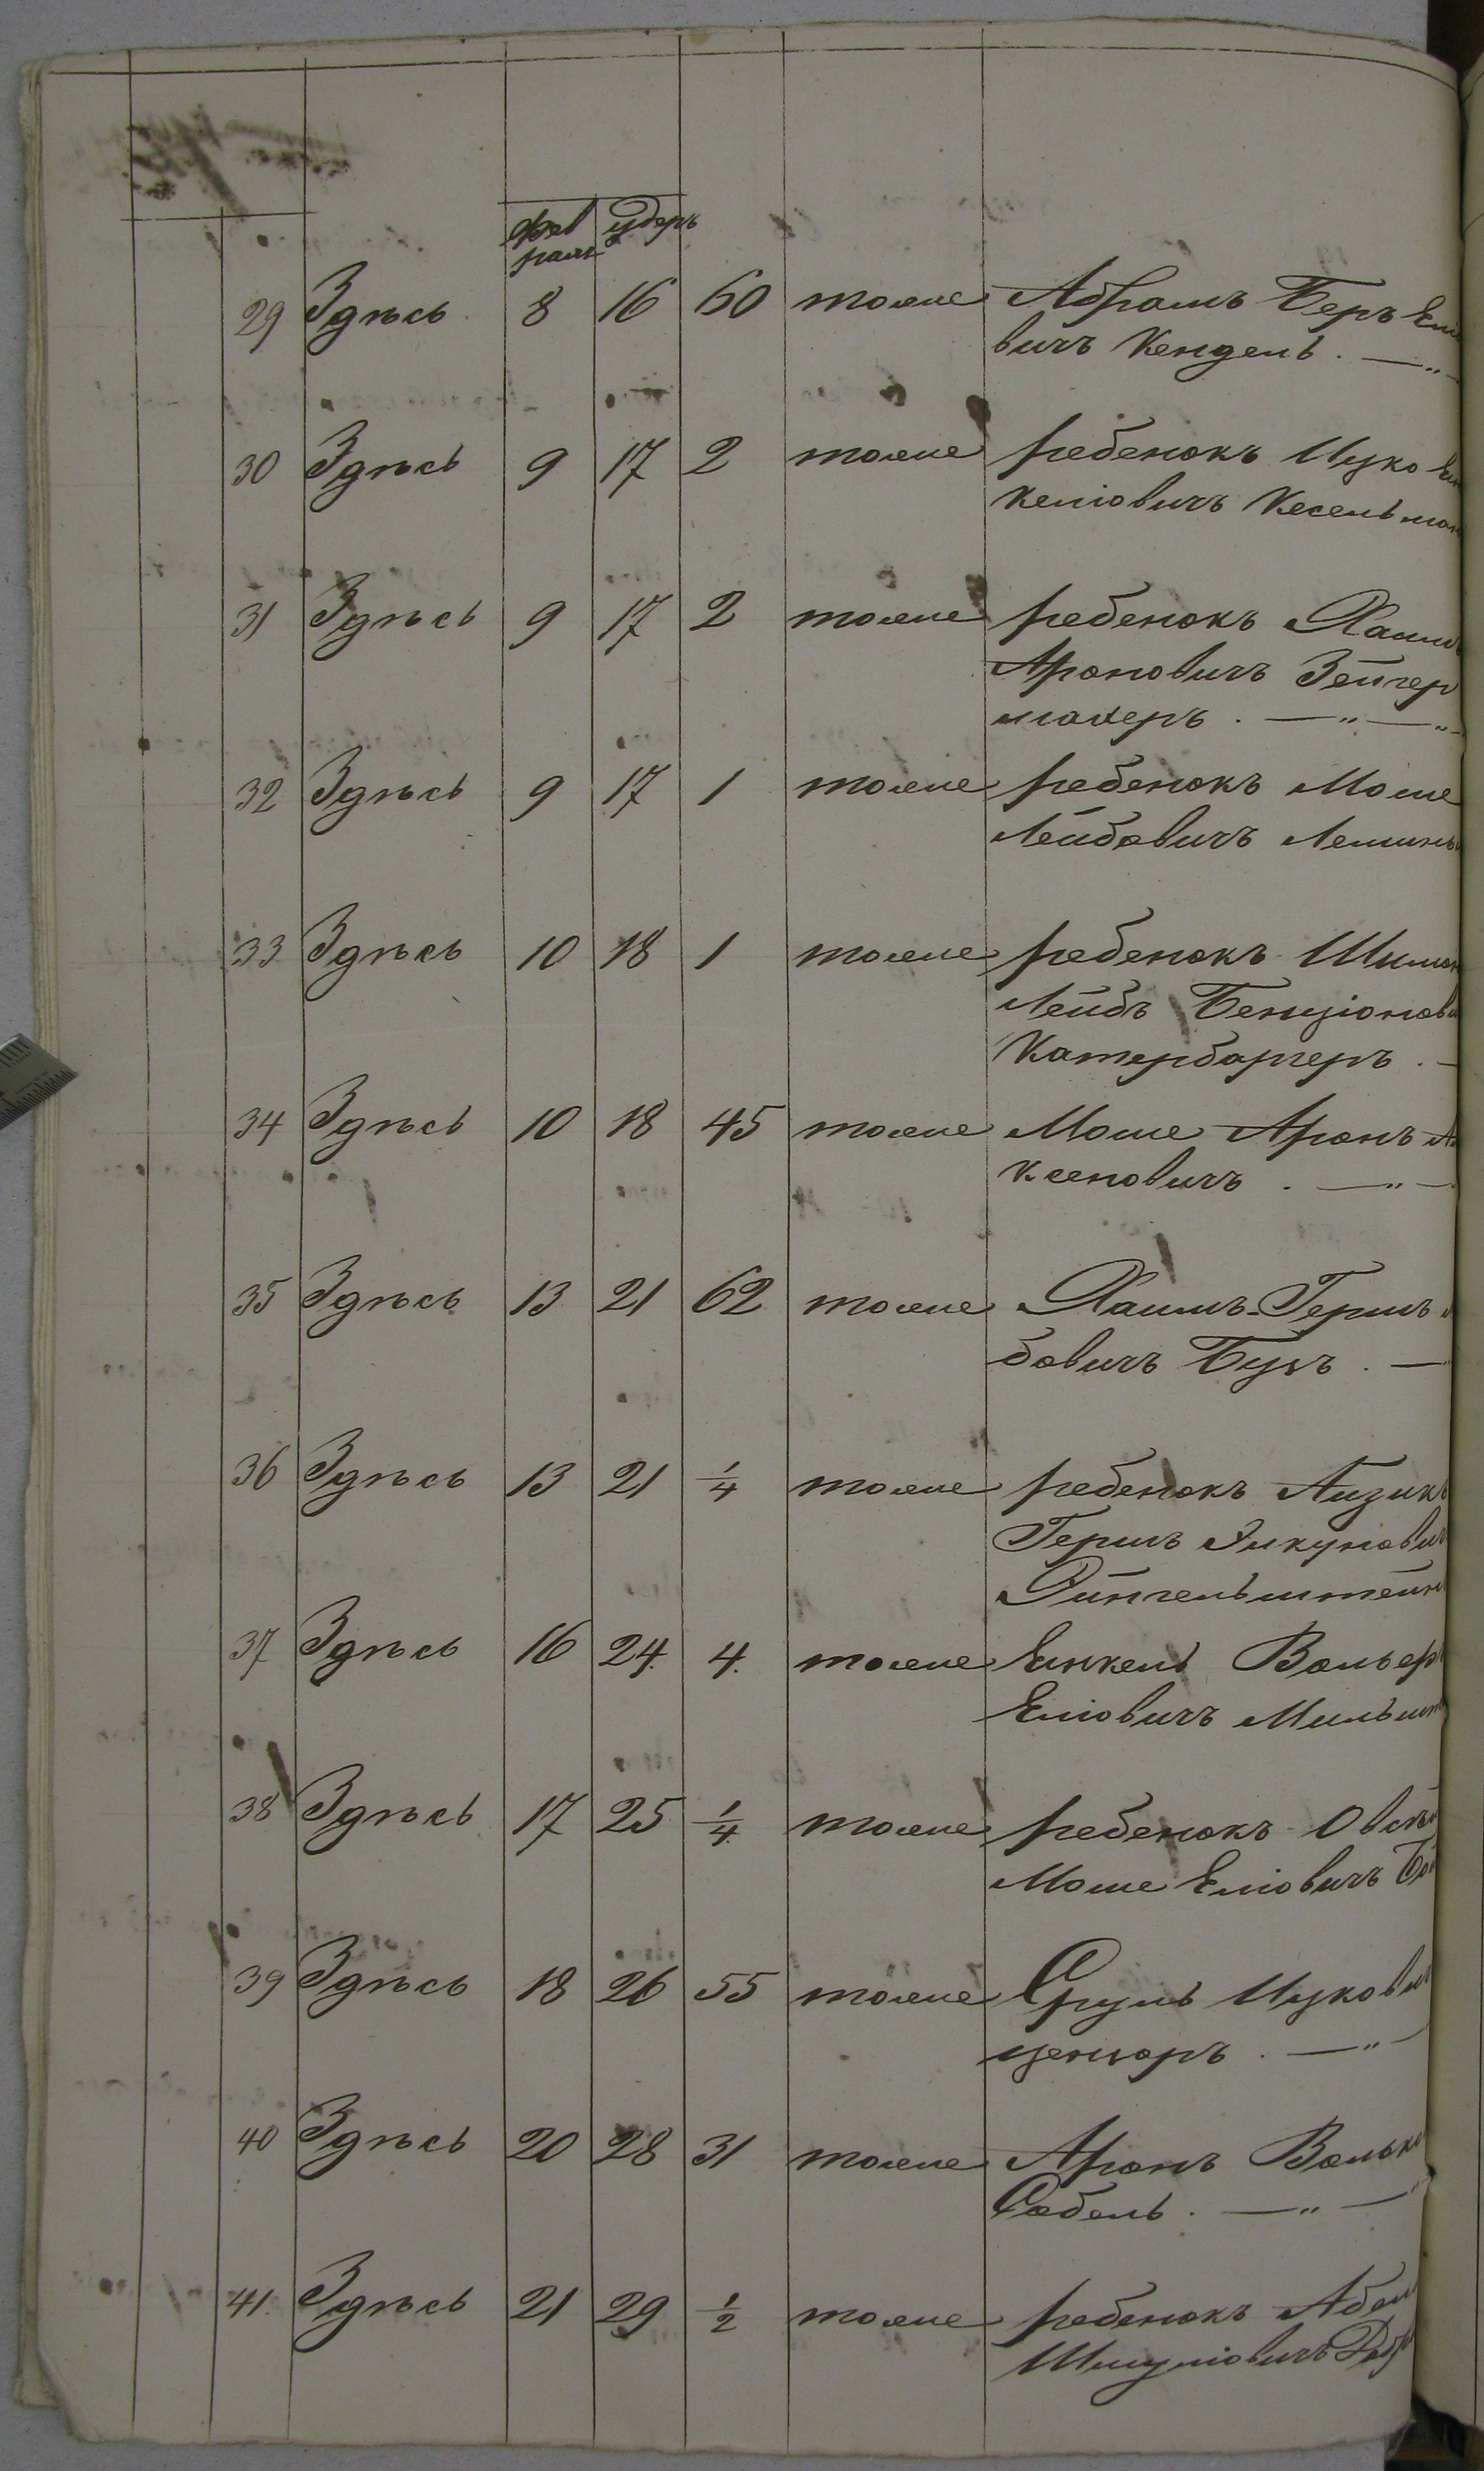 Фев
раль
удеръ
29 Здѣсь 8 16 60 тоже Абрамъ Беръ
вичъ Кендель . — „ —
30 Здѣсь 9 17 2 тоже ребенокъ Ицко
келіовичъ Кесельман
31 Здѣсь 9 17 2 тоже ребенокъ Хаимъ
Ароновичъ Зейгер
махеръ . — „ — „
32 Здѣсь 9 17 1 тоже ребенокъ Моше
Лейбовичъ
33 Здѣсь 10 18 1 тоже ребенокъ Шимон
Лейбъ Бенціонови
Катербаргеръ . —
34 Здѣсь 10 18 45 тоже Моше Аронъ
ксеновичъ . — „ —
35 Здѣсь 13 21 62 тоже Хаимъ-Гершъ
бовичъ Букъ . —
36 Здѣсь 13 21 1/4 тоже ребенокъ Айзикъ
Гершъ
Фингельштейнъ
37 Здѣсь 16 24. 4. тоже Енкель Вольер
Еліовичъ Мильшт
38 Здѣсь 17 25 1/4. тоже ребенокъ Овсѣй
Моше Еліовичъ
39 Здѣсь 18 26 55 тоже Сруль Ицкови
ценцеръ . — „ —
40 Здѣсь 20 28 31 тоже Аронъ Вольк
Собель . — „ —
41. Здѣсь 21 29 1/2 тоже ребенокъ Абель
Шмуліовичъ